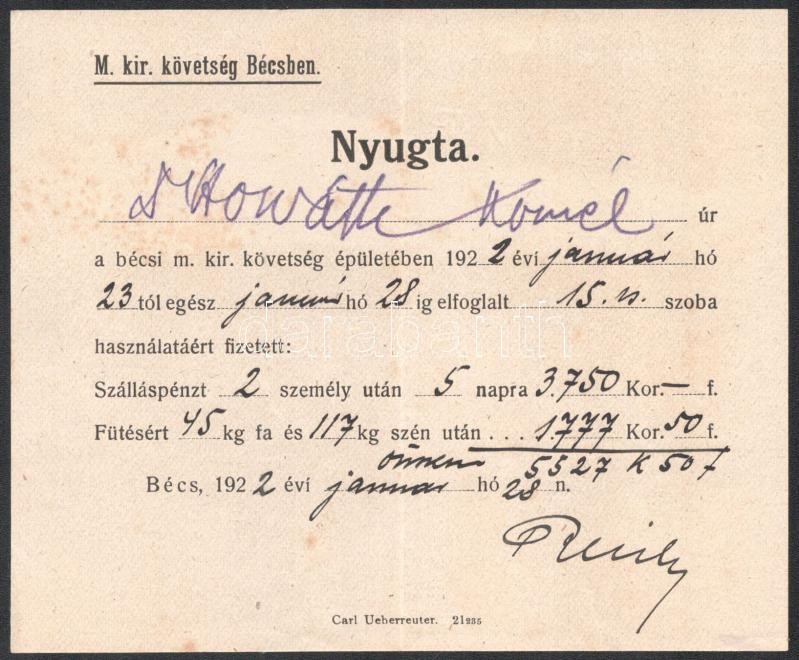 M. kir. követség Bécsben.
Nyugta.
Dr Howáth Kornél úr
a bécsi m. kir. követség épületében 1922 évi január hó
23 tól egész január hó 28 ig elfoglalt 15. sz. szoba
használatáért fizetett:
Szálláspénzt 2 személy után 5 napra 3.750 Kor. — f.
Fűtésért 45 kg fa és 117 kg szén után . . . 1777 Kor. 50 f.
5527 K 50 f
Bécs, 1922 évi január hó 28 n.
Carl Ueberreuter. 21235
darabanth